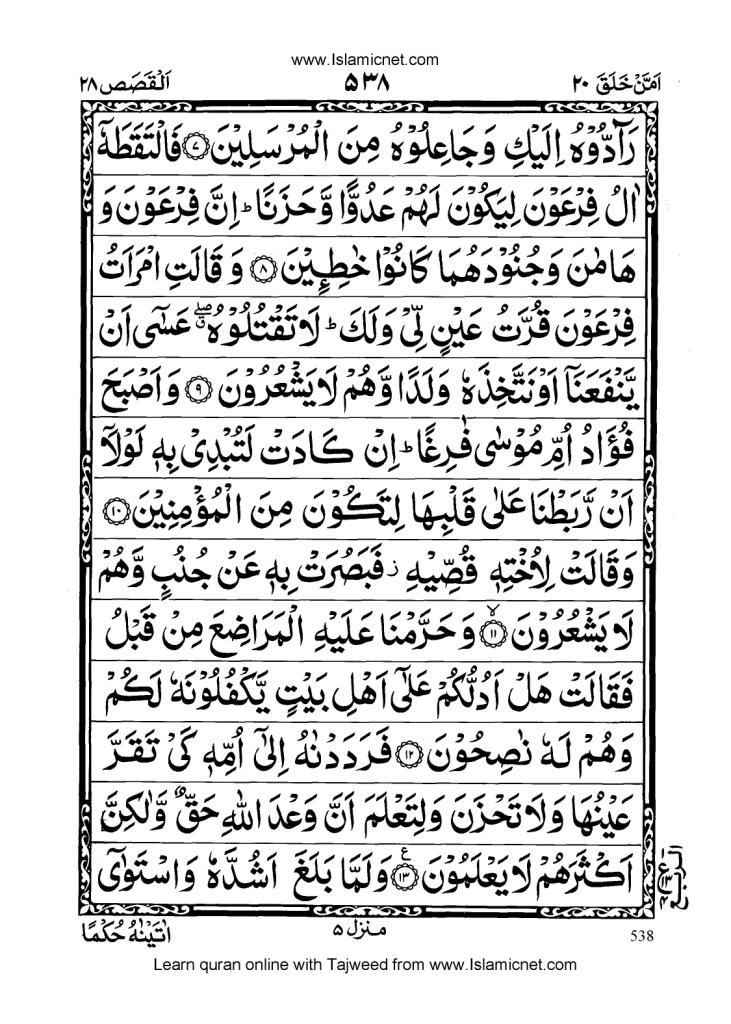 www.Islamicnet.com
اَمَّنْ خَلَقَ ٢٠ ۵۳۸ اَلْقَصَص ٢٨
رَآدُّوْهُ اِلَيْكِ وَجَاعِلُوْهُ مِنَ الْمُرْسَلِيْنَ ﴿۷﴾ فَالْتَقَطَهٗۤ
اٰلُ فِرْعَوْنَ لِيَكُوْنَ لَهُمْ عَدُوًّا وَّحَزَنًا ؕ اِنَّ فِرْعَوْنَ وَ
هَامٰنَ وَجُنُوْدَهُمَا كَانُوْا خٰطِـِٕيْنَ ﴿۸﴾ وَ قَالَتِ امْرَاَتُ
فِرْعَوْنَ قُرَّتُ عَيْنٍ لِّىْ وَلَكَ ؕ لَا تَقْتُلُوْهُ ۖ ق عَسٰٓى اَنْ
يَّنْفَعَنَاۤ اَوْ نَتَّخِذَهٗ وَلَدًا وَّهُمْ لَا يَشْعُرُوْنَ ﴿۹﴾ وَاَصْبَحَ
فُؤَادُ اُمِّ مُوْسٰى فٰرِغًا ؕ اِنْ كَادَتْ لَتُبْدِىْ بِهٖ لَوْلَاۤ
اَنْ رَّبَطْنَا عَلٰى قَلْبِهَا لِتَكُوْنَ مِنَ الْمُؤْمِنِيْنَ ﴿۱۰﴾
وَقَالَتْ لِاُخْتِهٖ قُصِّيْهِ ز فَبَصُرَتْ بِهٖ عَنْ جُنُبٍ وَّهُمْ
لَا يَشْعُرُوْنَ ﴿۱۱﴾ ۙ وَحَرَّمْنَا عَلَيْهِ الْمَرَاضِعَ مِنْ قَبْلُ
فَقَالَتْ هَلْ اَدُلُّكُمْ عَلٰٓى اَهْلِ بَيْتٍ يَّكْفُلُوْنَهٗ لَكُمْ
وَهُمْ لَهٗ نٰصِحُوْنَ ﴿۱۲﴾ فَرَدَدْنٰهُ اِلٰٓى اُمِّهٖ كَىْ تَقَرَّ
عَيْنُهَا وَلَا تَحْزَنَ وَلِتَعْلَمَ اَنَّ وَعْدَ اللّٰهِ حَقٌّ وَّلٰكِنَّ
اَكْثَرَهُمْ لَا يَعْلَمُوْنَ ﴿۱۳﴾ ع وَلَمَّا بَلَغَ اَشُدَّهٗ وَاسْتَوٰٓى
538 منزل ۵ اٰتَيْنٰهُ حُكْمًا
Learn quran online with Tajweed from www.Islamicnet.com